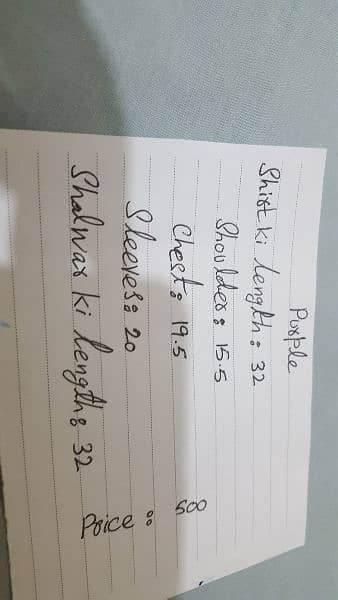 Purple
Shirt ki length: 32
Shoulder: 15.5
Chest: 19.5
Sleeves: 20
Shalwar ki length: 32
Price:
500